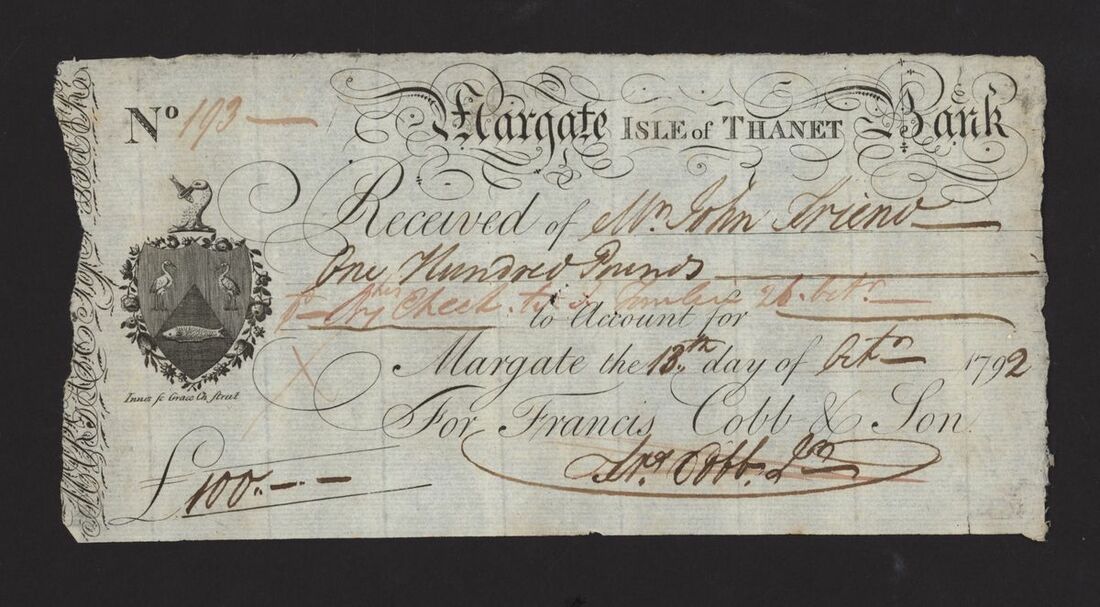 No 193
Margate ISLE of THANET Bank
Received of Mr. John Friend
One Hundred Pounds
Check 26 Octr.
to Account for
Margate the 13th day of Octr 1792
For Francis Cobb & Son
Frs Cobb Jnr
£100,,-,-
Innes sc Grace Ch. street